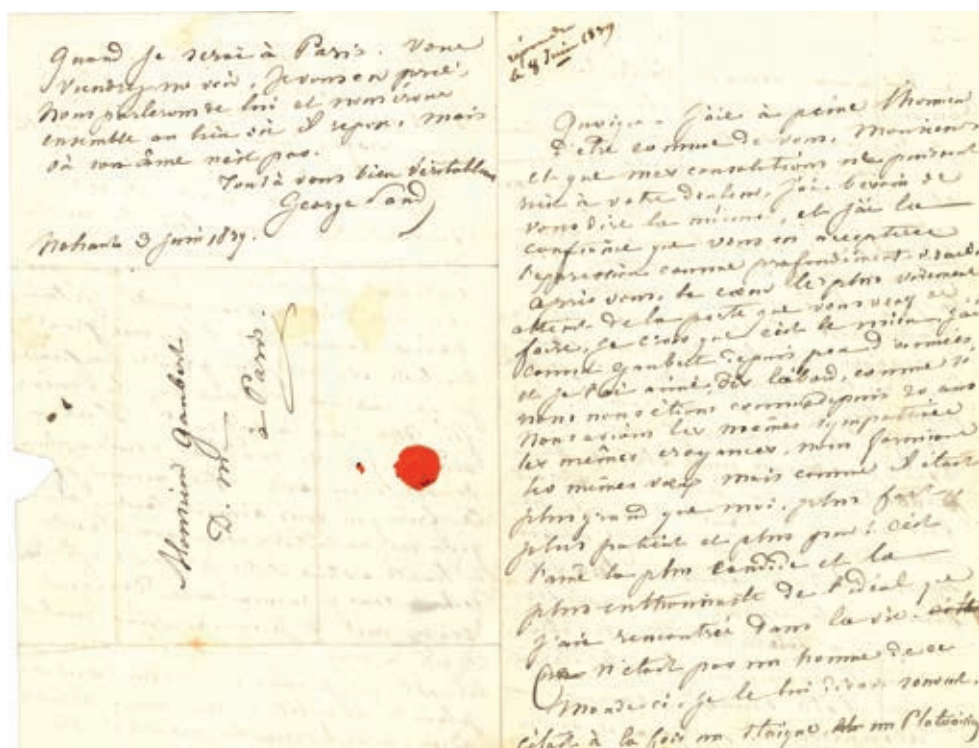 Quand je serai à Paris. vous
viendrez me voir, je vous en prie,
Nous parlerons de lui et nous irons
ensemble au lieu où il repose, mais
où son âme n'est pas.
Tout à vous bien véritablement
George Sand
Nohant 3 juin 1839.
Monsieur Gaubert
D. M.
à Paris.
le 8 Juin 1839
Quoique j'aie à peine l'honneur
d'être connue de vous, Monsieur
et que mes consolations ne puissent
rien à votre douleur, j'ai besoin de
vous dire la mienne, et j'ai la
confiance que vous en accepterez
l'expression comme profondément
Après vous, le cœur le plus
atteint de la perte que vous venez de
faire, je crois que c'est le mien. J'ai
connu Gaubert depuis peu d'années,
et je l'ai aimé dès l'abord, comme si
nous nous étions connus depuis 20 ans
Nous avions les mêmes sympathies
les mêmes croyances, nous formions
les mêmes vœux mais comme il était
plus grand que moi, plus
plus patient et plus pur! c'est
l'âme la plus candide et la
plus enthousiaste de l'idéal que
j'aie rencontrée dans la vie.
n'était pas un homme de ce
monde-ci, je le lui disais souvent.
c'était à la fois un Stoïque un Platonicien